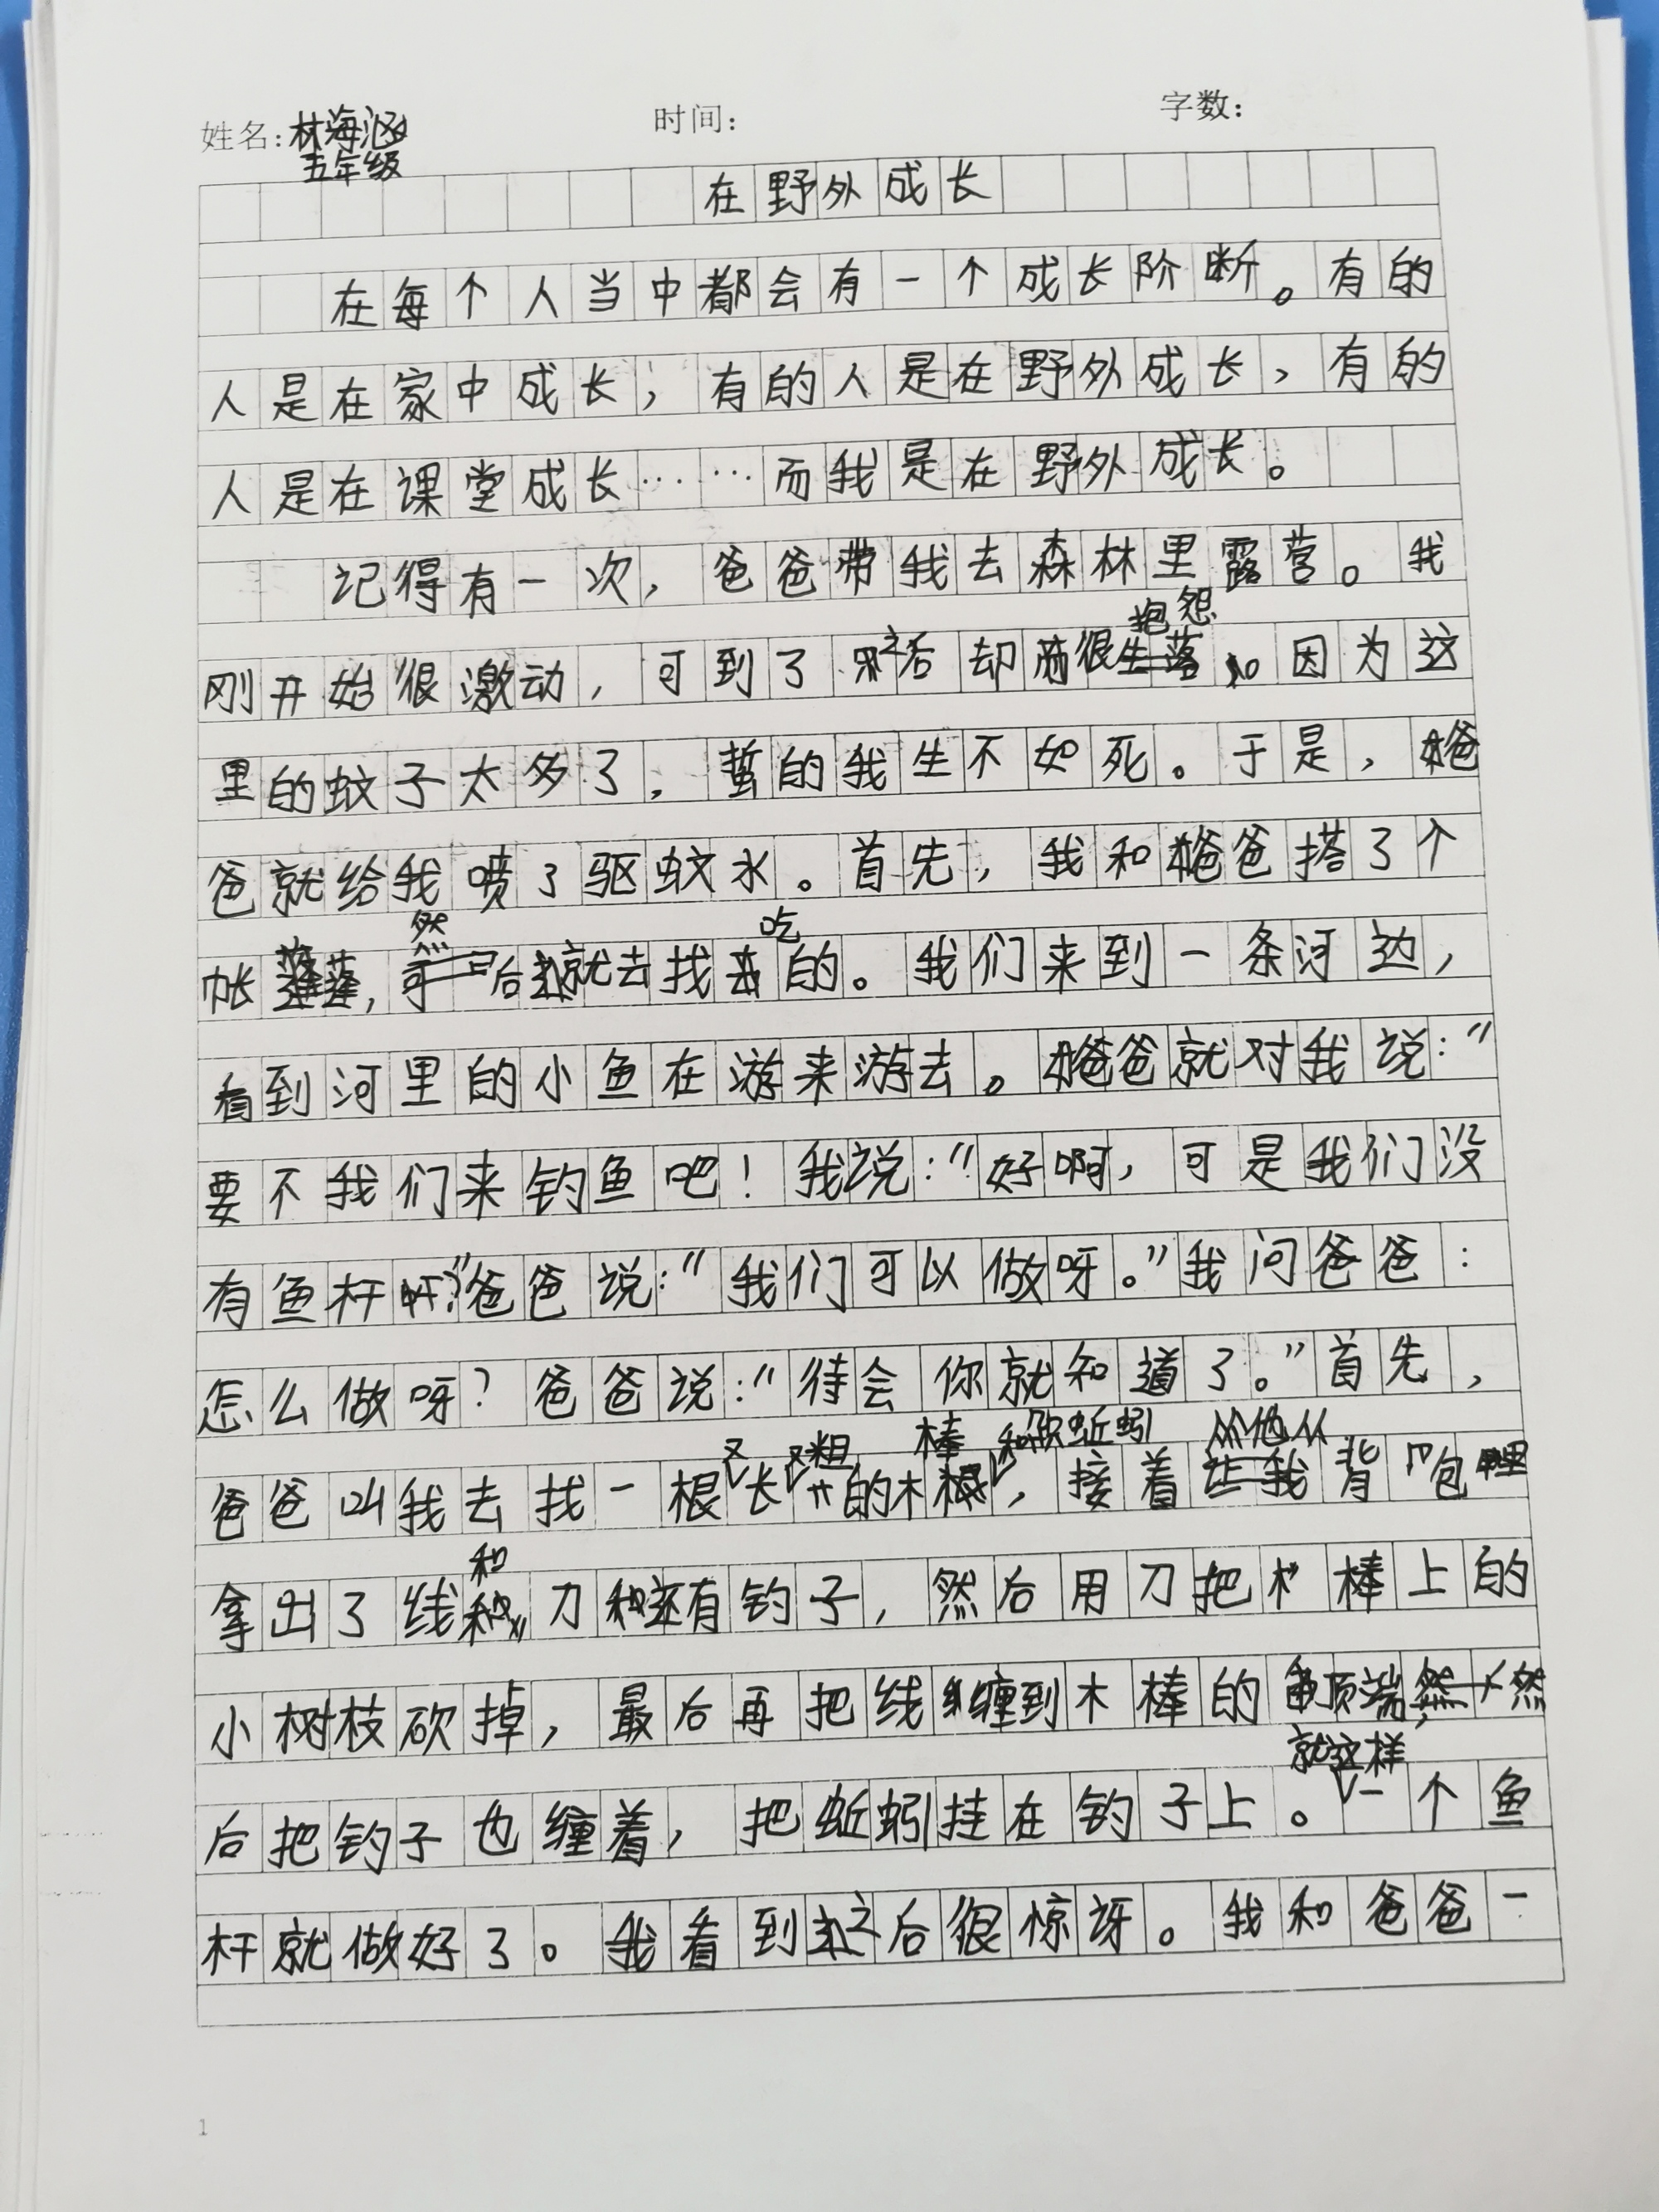 姓名:林海涵 时间: 字数:
五年级
在野外成长
在每个人当中都会有一个成长阶断。有的
人是在家中成长，有的人是在野外成长，有的
人是在课堂成长……而我是在野外成长。
记得有一次，爸爸带我去森林里露营。我
抱怨
刚开始很激动，可到了之后却很。因为这
里的蚊子太多了，蜇的我生不如死。于是，爸
爸就给我喷了驱蚊水。首先，我和爸爸搭了个
然 吃
帐蓬，后就去找的。我们来到一条河边，
看到河里的小鱼在游来游去。爸爸就对我说：“
要不我们来钓鱼吧！我说：“好啊，可是我们没
有鱼杆呀？”爸爸说：“我们可以做呀。”我问爸爸：
怎么做呀？爸爸说：“待会你就知道了。”首先，
又 又粗 棒 和蚯蚓 他从
爸爸叫我去找一根长的木，接着背包里
和
拿出了线刀还有钓子，然后用刀把木棒上的
小树枝砍掉，最后再把线缠到木棒的顶端，然
就这样
后把钓子也缠着，把蚯蚓挂在钓子上。一个鱼
杆就做好了。我看到之后很惊讶。我和爸爸一
1